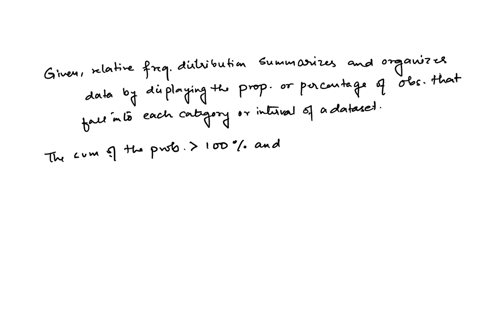 Given, relative freq. distribution summarizes and organizes
data by displaying the prop. or percentage of obs. that
fall into each category or interval of a dataset.
The sum of the prob. > 100% and